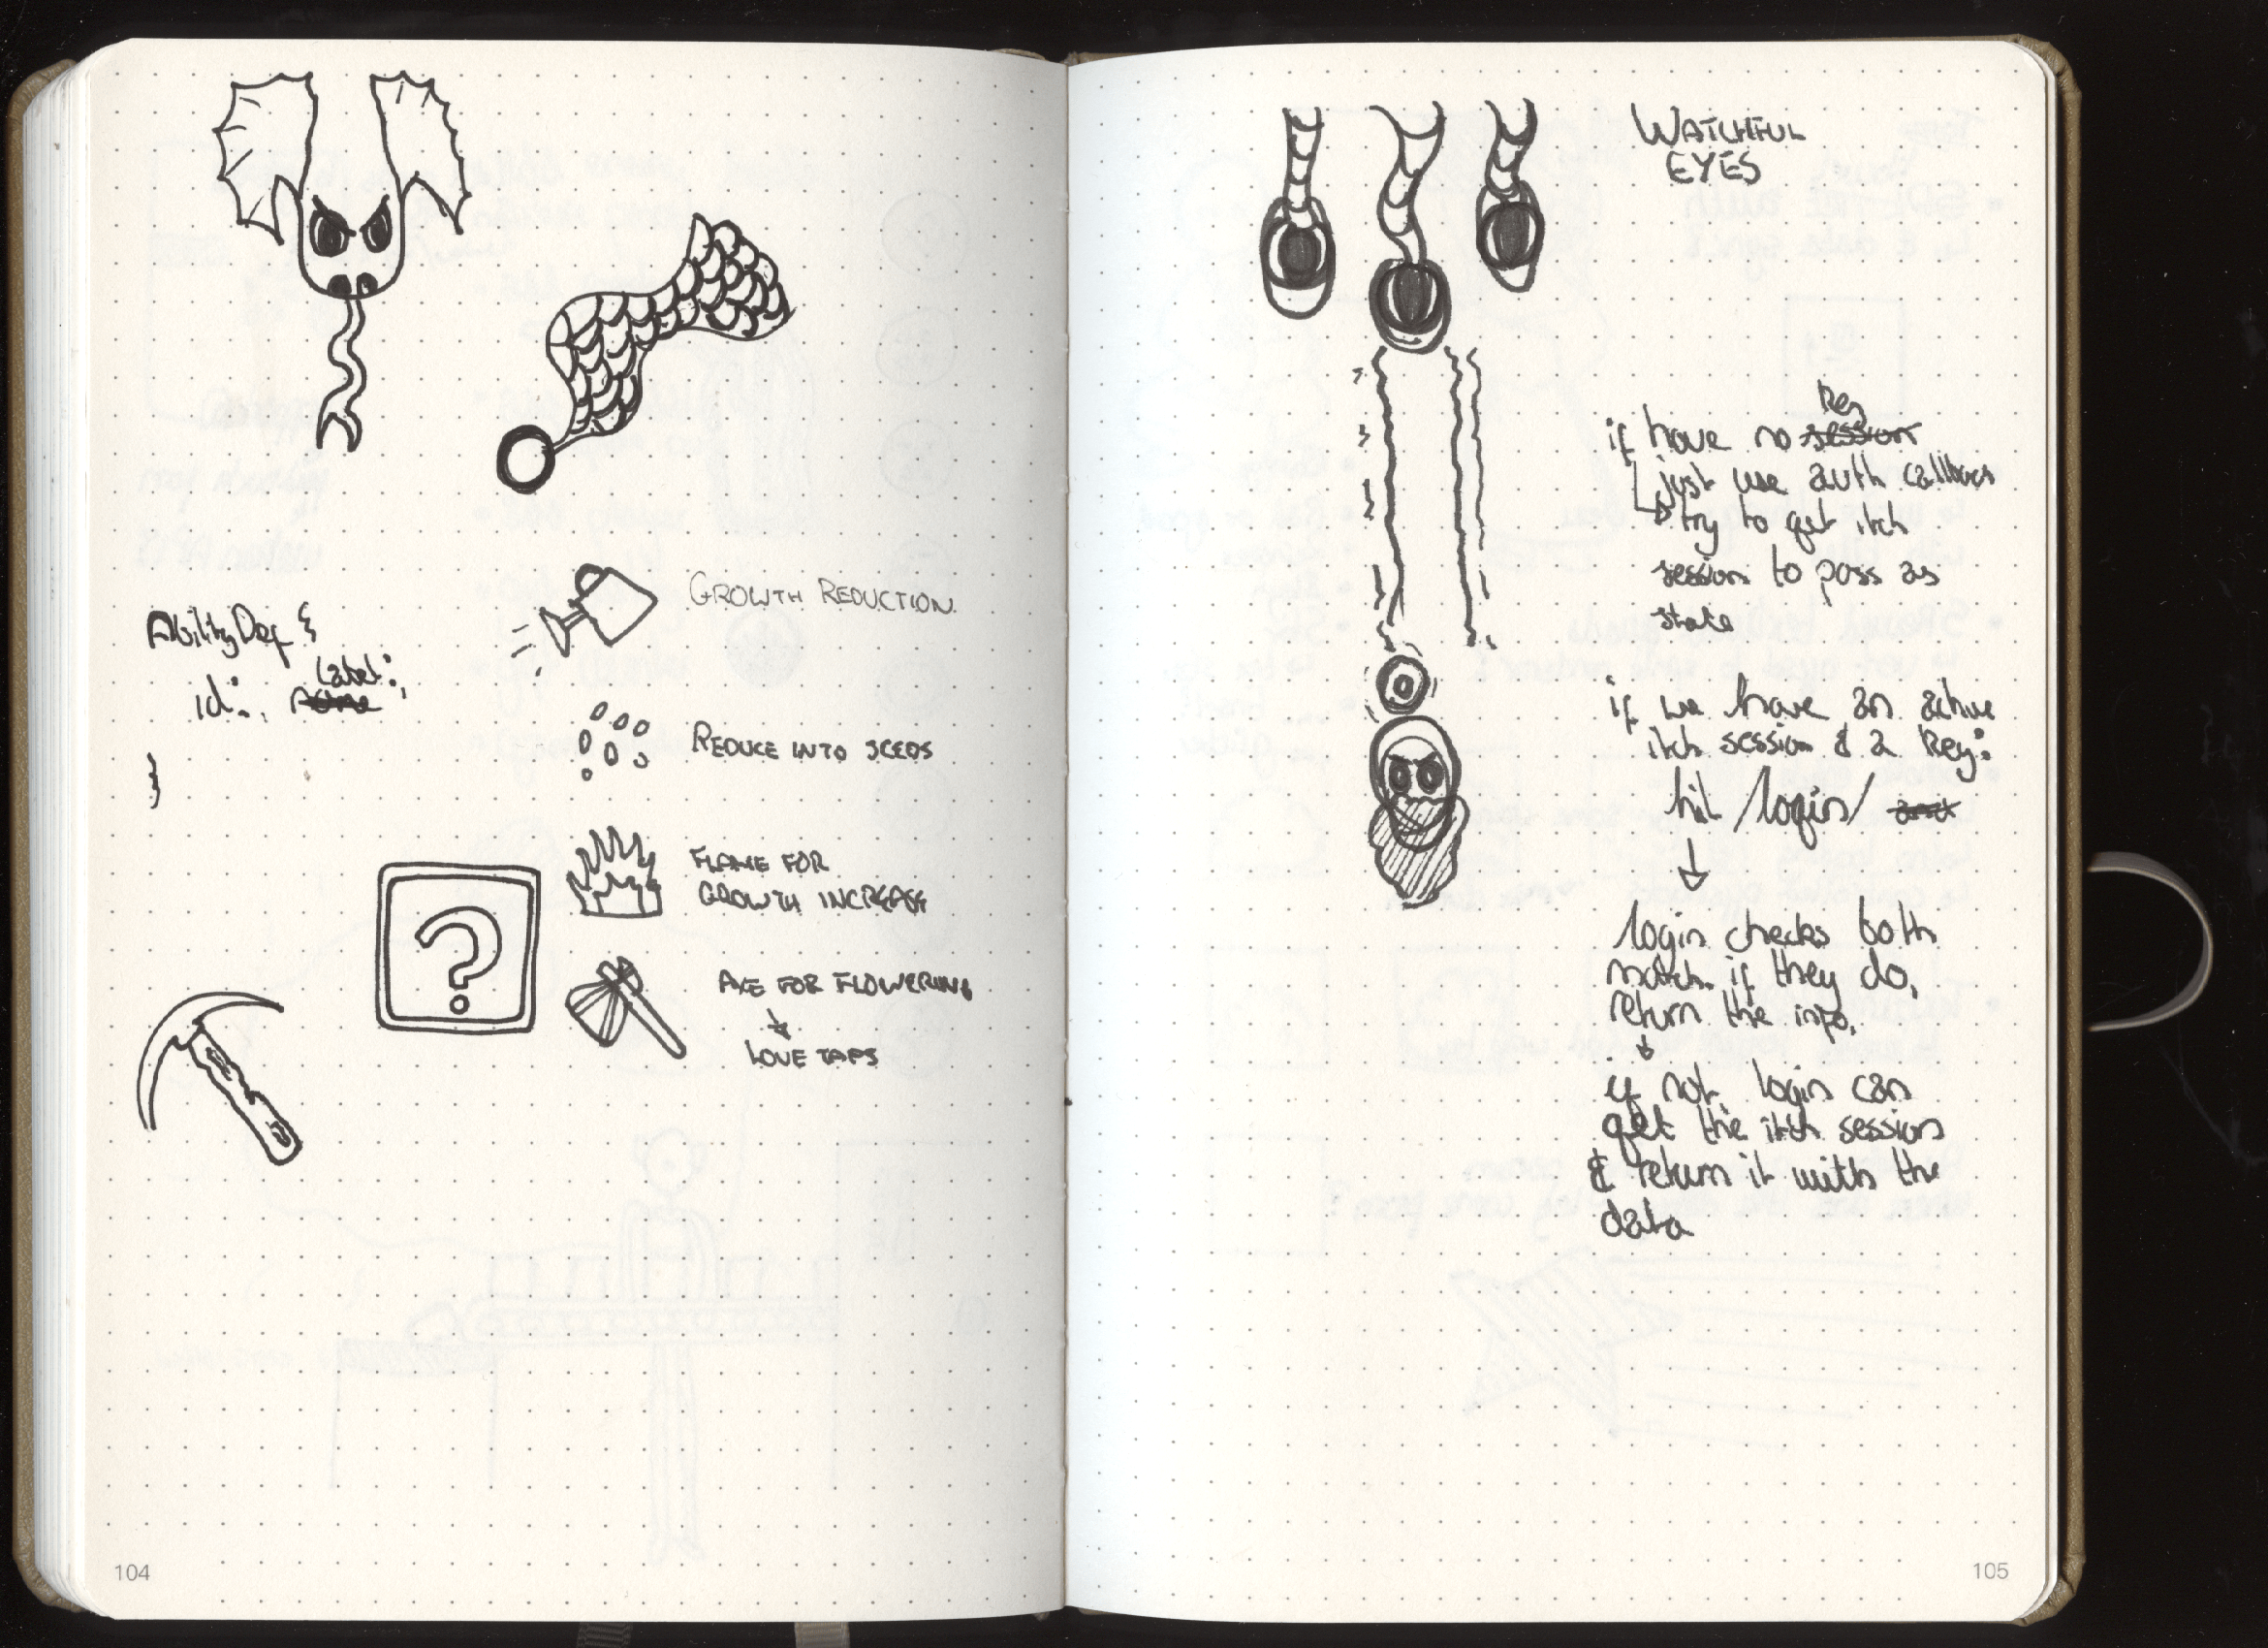 AbilityDef {
Label:,
id:, name
}
GROWTH REDUCTION
REDUCE INTO SEEDS
FLAME FOR
GROWTH INCREASE
?
AXE FOR FLOWERING
LOVE TAPS
104
WATCHFUL
EYES
key
if have no session
just use auth callback
try to get itch
session to pass as
state
if we have an active
itch session & a key:
hit /login/ and
login checks both
match. if they do,
return the info.
if not, login can
get the itch session
& return it with the
data
105